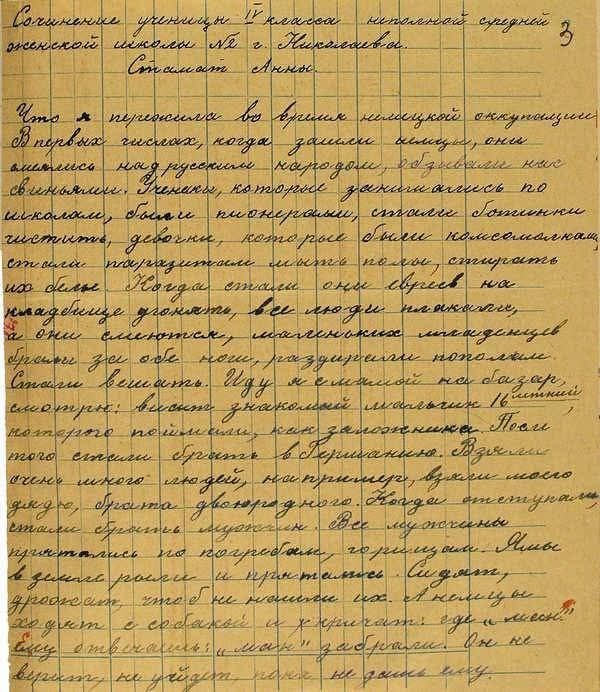 Сочинение ученицы IV класса неполной средней
женской школы №2 г. Николаева.
3
Стамат Анны.
Что я пережила во время немецкой оккупации
В первых числах, когда зашли немцы, они
смеялись над русским народом, обзывали нас
свиньями. Ученики, которые занимались по
школам, были пионерами, стали ботинки
чистить, девочки, которые были комсомолками,
стали паразитам мыть полы, стирать
их бельё. Когда стали они евреев на
кладбище угонять, все люди плакали,
а они смеются, маленьких младенцев
брали за обе ноги, раздирали пополам.
Стали вешать. Иду я с мамой на базар,
смотрю: висит знакомый мальчик 16 летний,
которого поймали, как заложника. После
того стали брать в Германию. Взяли
очень много людей, например, взяли моего
дядю, брата двоюродного. Когда отступали,
стали брать мужчин. Все мужчины
прятались по погребам, горищам. Ямы
в земле рыли и прятались. Сидят,
дрожат, чтоб не нашли их. А немцы
ходят с собакой и кричат: где „ман."
Ему отвечаешь: „ман" забрали. Он не
верит, не уйдет, пока не дашь ему